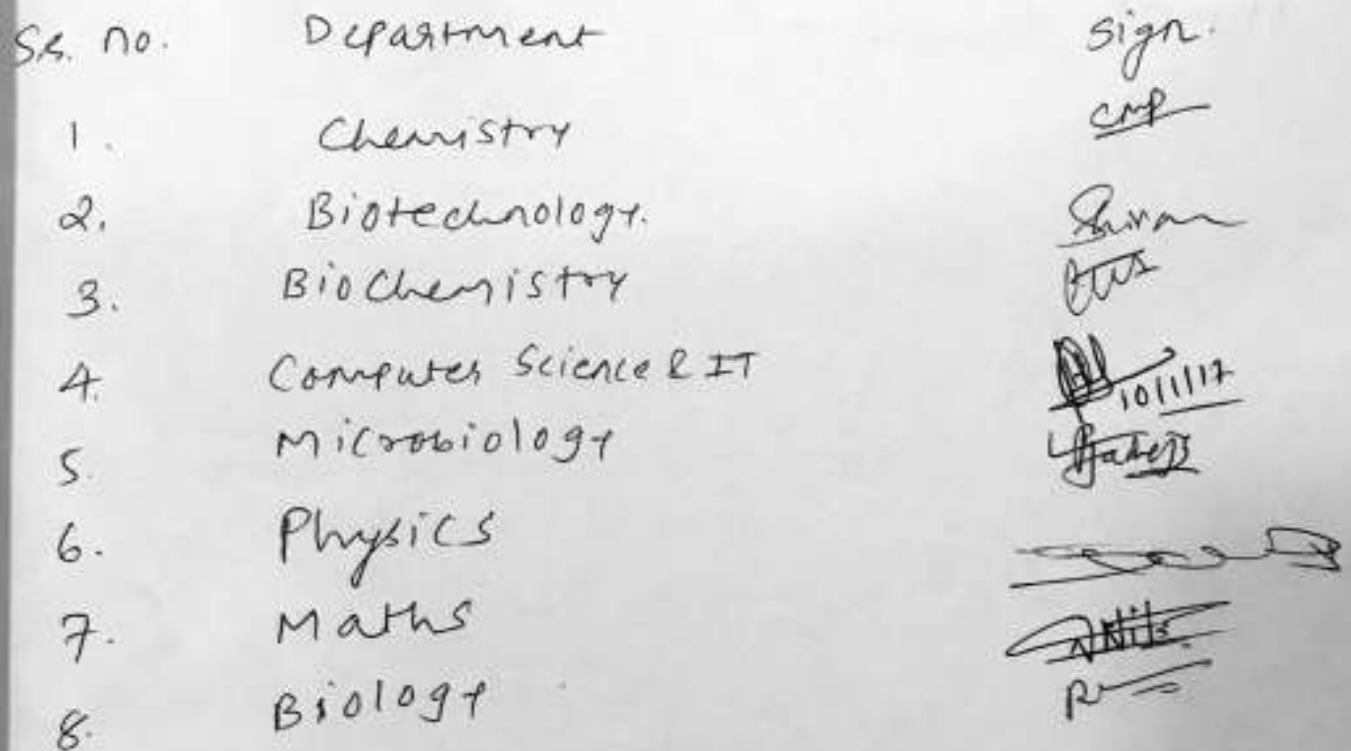 Sr. no. Department Sign.
1. Chemistry CMP
2. Biotechnology.
3. BioChemistry
4. Computer Science & IT 10/1/17
5. Microbiology
6. Physics
7. Maths
8. Biology